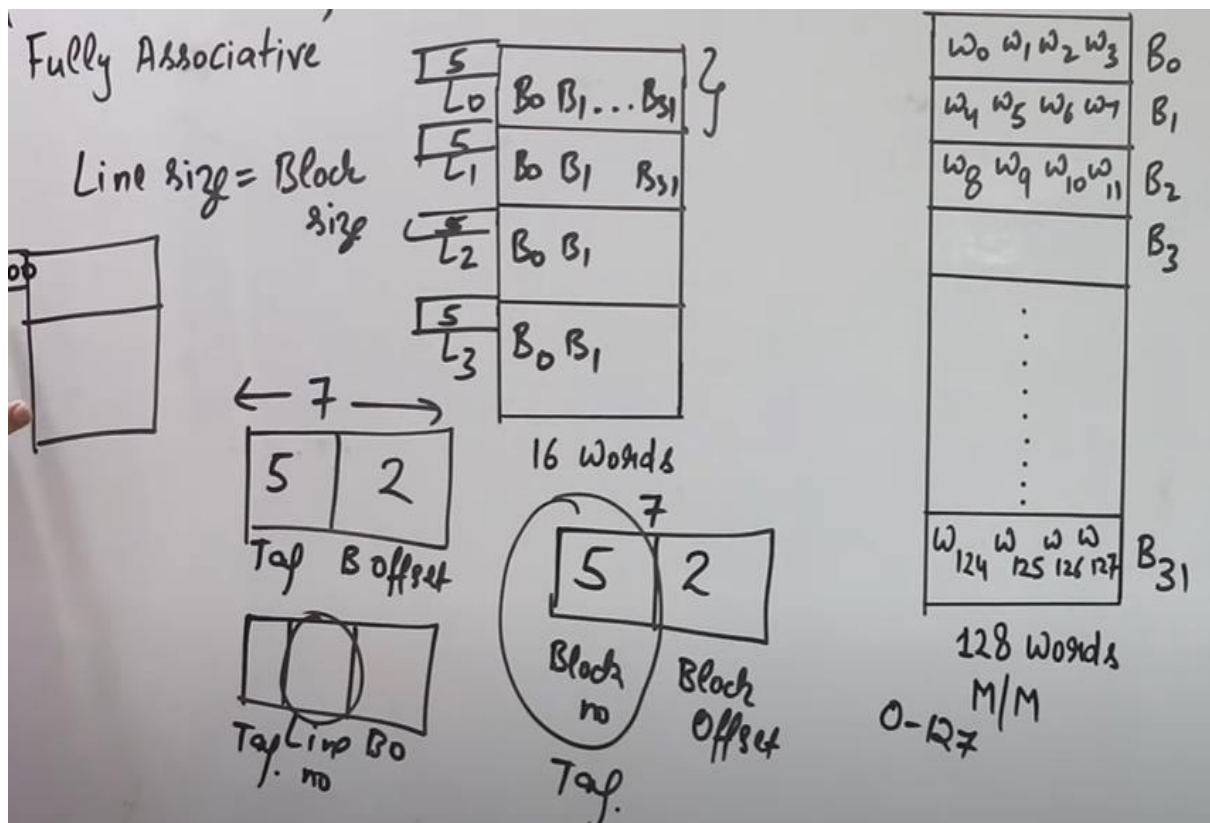 Fully Associative
Line size = Block
size
00
5
L0 B0 B1 ... B31
5
L1 B0 B1 B31
5
L2 B0 B1
5
L3 B0 B1
16 Words
← 7 →
5 2
Tag B Offset
Tag. Line no BO
7
5 2
Block no Block Offset
Tag.
W0 W1 W2 W3 B0
W4 W5 W6 W7 B1
W8 W9 W10 W11 B2
B3
W124 W125 W126 W127 B31
128 Words
M/M
0-127